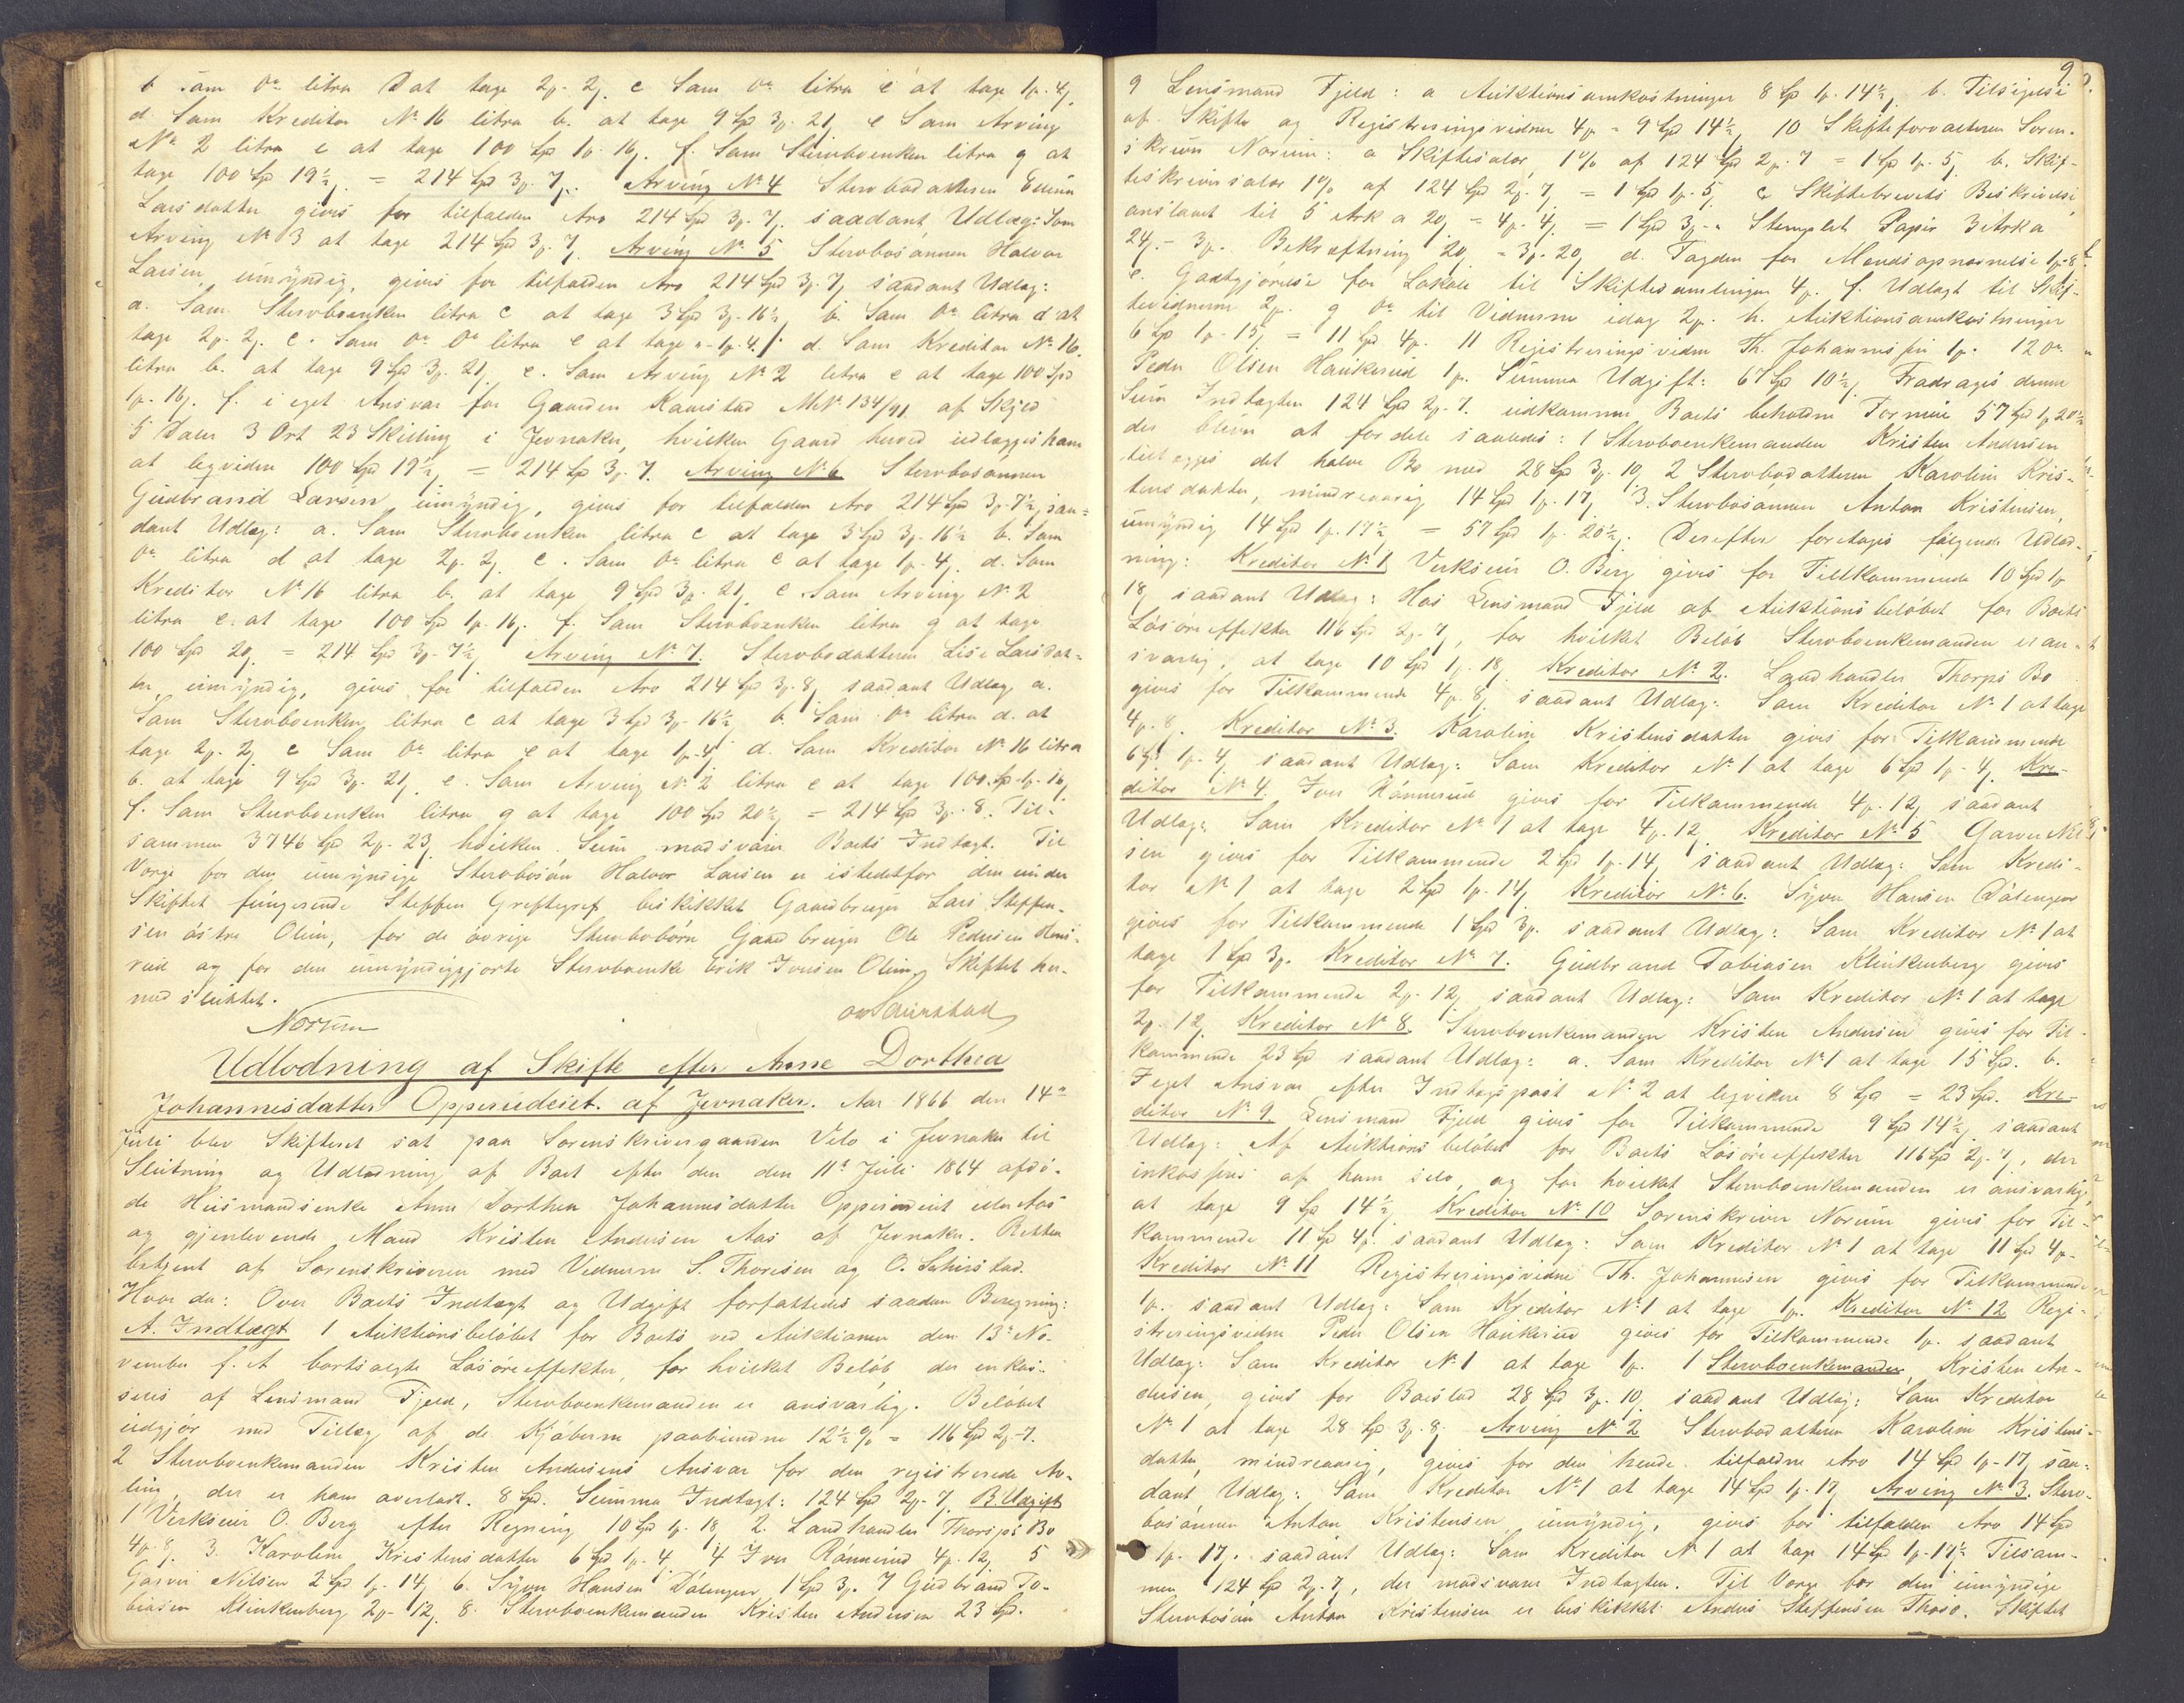 b. Som Do litra D at tage 2p. 2s. c Som Do litra e at tage 1p. 4s.
d. Som Kreditor No 16 litra b. at tage 9 Spd 3p. 21s e Som Arving
No 2 litra e at tage 100 Spd 1p. 16s. f. Som Stervboenken litra g at
tage 100 Spd 19½s. = 214 Spd 3p. 7s. Arving No 4 Stervbodatteren
Larsdatter gives for tilfalden Arv 214 Spd 3p. 7s. saadant Udlæg: Som
Arving No 3 at tage 214 Spd 3p. 7s. Arving No 5 Stervbosønnen Halvor
Larsen, umyndig, gives for tilfalden Arv 214 Spd 3p. 7s saadant Udlæg:
a. Som Stervboenken litra c at tage 3 Spd 3p. 16½s b. Som Do litra d at
tage 2p. 2s. c. Som Do Do litra e at tage 1p. 4s. d. Som Kreditor No 16.
litra b. at tage 9 Spd 3p. 21s e. Som Arving No 2 litra e at tage 100 Spd
1p. 16s. f. i eget Ansvar for Gaarden Kamstad MN. 134/91. af Skyld
5 Daler 3 Ort 23 Skilling i Jevnaker, hvilken Gaard herved udlægges ham
at ligvidere 100 Spd 19½s = 214 Spd 3p. 7. Arving No 6 Stervbosønnen
Gudbrand Larsen umyndig, gives for tilfalden Arv 214 Spd 3p. 7½s saa=
dant Udlæg: a. Som Stervboenken litra c at tage 3 Spd 3p. 16½ b. Som
Do litra d at tage 2p. 2s. c. Som Do litra e at tage 1p. 4s. d. Som
Kreditor No 16 litra b. at tage 9 Spd 3p. 21s e Som Arving No 2
litra e. at tage 100 Spd 1p. 16s. f. Som Stervboenken litra g at tage
100 Spd 20s = 214 Spd 3p. 7½s Arving No 7. Stervbodatteren Lise Larsdat=
ter, umyndig, gives for tilfalden Arv 214 Spd 3p. 8s saadant Udlæg a.
Som Stervboenken litra c at tage 3 Spd 3p. 16½ b. Som Do litra d. at
tage 2p. 2s c Som Do litra e at tage 1p. 4s d. Som Kreditor No 16 litra
b. at tage 9 Spd 3p. 21s. e. Som Arving No 2 litra e at tage 100 Sp. 1p. 16s
f. Som Stervboenken litra g at tage 100 Spd 20½s = 214 Spd 3p. 8. Til-
sammen 3746 Spd 2p. 23s hvilken Sum modsvarer Boets Indtægt. Til
Værge for den umyndige Stervbosøn Halvor Larsen er istedetfor den under
Skiftet fungerende Steffen Greftegref beskikket Gaardbruger Lars Steffen-
sen østre Olum, for de øvrige Stervbobørn Gaardbruger Ole Pedersen
rud og for den umyndiggjorte Stervboenke Erik Iversen Olum. Skiftet her-
med sluttet.
Norum
Udlodning af Skifte efter Anne Dorthea
Johannesdatter Opperudeiet. af Jevnaker. Aar 1866 den 14de
Juli blev Skifteret sat paa Sorenskrivergaarden Velo i Jevnaker til
Slutning og Udlodning af Boet efter den den 11te Juli 1864 afdø-
de Huusmandsenke Anne Dorthea Johannesdatter Opperudeiet eller Aas
og gjenlevende Mand Kristen Andersen Aas af Jevnaker. Retten
betjent af Sorenskriveren med Vidnerne S. Thoresen og O.
Hvor da: Over Boets Indtægt og Udgift forfattedes saadan Beregning:
A. Indtægt 1 Auktionsbeløbet for Boets ved Auktionen den 13de No-
vember f. A bortsolgte Løsøreeffekter, for hvilket Beløb, der inkas-
seres af Lensmand Fjeld, Stervboenkemanden er ansvarlig. Beløbet
udgjør med Tillæg af de Kjøberne paabundne 12½% = 116 Spd 2p. 7.
2 Stervboenkemanden Kristen Andersens Ansvar for den registrerede Av-
ling, der er ham overladt. 8 Spd. Summa Indtægt: 124 Spd 2p. 7s B. Udgift
1 Verkseier O. Berg efter Regning 10 Spd 1p. 18s 2. Landhandler Thorps Bo
4p. 8s. 3. Karoline Kristensdatter 6 Spd 1p. 4. 4 Iver Rønnerud 4p. 12s 5
Garver Nilsen 2 Spd 1p. 14s 6. Syver Hansen Dælengen 1 Spd 3p. 7 Gudbrand To-
biasen Klinkenberg 2p. 12s 8. Stervboenkemanden Kristen Andersen 23 Spd.
9.
9 Lensmand Fjeld: a Auktionsomkostninger 8 Sp 1p. 14½s b. Tilsigelse
af Skifte og Registreringsvidner 4p = 9 Spd 14½s 10 Skifteforvalteren Soren-
skriver Norum: a Skiftesalær 1% af 124 Spd 2p. 7 = 1 Spd 1p. 5s b. Skif-
teskriversalær 1% af 124 Spd 2p. 7s = 1 Spd 1p. 5s c Skiftebrevets Beskrivelse
anslaaet til 5 Ark a 20s = 4p. 4s = 1 Spd 3p. Stemplet Papir 3 Ark a
24s. = 3p. Bekræftning 20s = 3p. 20s d. Tagden for Mandsopnævnelse 1p. 8
e. Godtgjørelse for Lokale til Skiftesamlingen 4p. f. Udlagt til Skif-
tevidnerne 2p. g Do til Vidnerne idag 2p. h. Auktionsomkostninger
6 Sp 1p. 15s = 11 Spd 4p. 11 Registreringsvidne Th. Johannessen 1p. 12 Do
Peder Olsen Haukerud 1p. Summa Udgift: 67 Sp 10½s. Fradrages denne
Sum Indtægten 124 Spd 2p. 7. udkommer Boets beholdne Formue 57 Spd 1p 20½
der bliver at fordele saaledes: 1 Stervboenkemanden Kristen Andersen
tillægges det halve Bo med 28 Spd 3p. 10s 2 Stervbodatteren Karoline Kris-
tensdatter, mindreaarig 14 Spd 1p. 17s 3. Stervbosønnen Anton Kristensen,
umyndig 14 Spd 1p. 17½ = 57 Spd 1p. 20½s. Derefter foretages følgende Udlod-
ning: Kreditor No 1 Verkseier O. Berg gives for Tillkommende 10 Spd 1p
18s saadant Udlæg: Hos Lensmand Fjeld af Auktionsbeløbet for Boets
Løsøreeffekter 116 Spd 2p. 7s, for hvilket Beløb Stervboenkemanden er an-
svarlig, at tage 10 Spd 1p. 18. Kreditor No 2. Landhandler Thorps Bo
gives for Tilkommende 4p. 8s saadant Udlæg: Som Kreditor No 1 at tage
4p. 8. Kreditor No 3. Karoline Kristensdatter gives for Tilkommende
6 Spd 1p. 4s saadant Udlæg: Som Kreditor No 1 at tage 6 Spd 1p. 4s. Kre-
ditor No 4. Iver Rønnerud gives for Tilkommende 4p. 12s saadant
Udlæg: Som Kreditor No 1 at tage 4p. 12s. Kreditor No 5 Garver Nil
sen gives for Tilkommende 2 Spd 1p. 14s saadant Udlæg: Som Kredi-
tor No 1 at tage 2 Spd 1p. 14s Kreditor No 6. Syver Hansen Dælengen
gives for Tilkommende 1 Spd 3p. saadant Udlæg: Som Kreditor No 1 at
tage 1 Spd 3p. Kreditor No 7. Gudbrand Tobiasen Klinkenberg gives
for Tilkommende 2p. 12s saadant Udlæg: Som Kreditor No 1 at tage
2p. 12s. Kreditor No 8. Stervboenkemanden Kristen Andersen gives for Til-
kommende 23 Spd saadant Udlæg: a. Som Kreditor No 1 at tage 15 Spd. b.
I eget Ansvar efter Indtægtspost No 2 at ligvidere 8 Spd = 23 Spd. Kre-
ditor No 9. Lensmand Fjeld gives for Tilkommende 9 Spd 14½s saadant
Udlæg: Af Auktionsbeløbet for Boets Løsøreeffekter 116 Spd 2p. 7s, der
inkasseres af ham selv, og for hvilket Stervboenkemanden er ansvarlig,
at tage 9 Sp 14½s Kreditor No 10 Sorenskriver Norum gives for Til-
kommende 11 Spd 4p. saadant Udlæg: Som Kreditor No 1 at tage 11 Spd 4p.
Kreditor No 11 Registreringsvidne Th. Johannesen gives for Tilkommende
1p. saadant Udlæg: Som Kreditor No 1 at tage 1p. Kreditor No 12 Regi-
streringsvidne Peder Olsen Haukerud gives for Tilkommende 1p. saadant
Udlæg: Som Kreditor No 1 at tage 1p. 1 Stervboenkemanden, Kristen An-
dersen, gives for Boeslod 28 Spd 3p. 10s saadant Udlæg: Som Kreditor
No 1 at tage 28 Spd 3p. 8s Arving No 2 Stervbodatteren Karoline Kristens-
datter, mindreaarig, gives for den hende tilfaldne Arv 14 Spd 1p. 17s saa-
dant Udlæg: Som Kreditor No 1 at tage 14 Spd 1p. 17 Arving No 3. Sterv-
bosønnen Anton Kristensen umyndig, gives for tilfalden Arv 14 Spd
1p. 17s. saadant Udlæg: Som Kreditor No 1 at tage 14 Spd 1p. 17½ Tilsam-
men 124 Spd 2p. 7s, der modsvarer Indtægten. Til Værge for den umyndige
Stervbosøn Anton Kristensen er beskikket Anders Steffensen Thoso. Skiftet